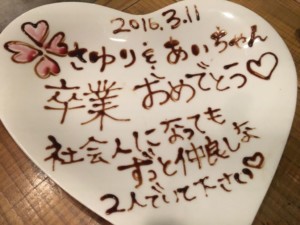 2016.3.11
さゆり&あいちゃん
卒業 おめでとう♡
社会人になっても
ずっと仲良しな
2人でいてださい♡